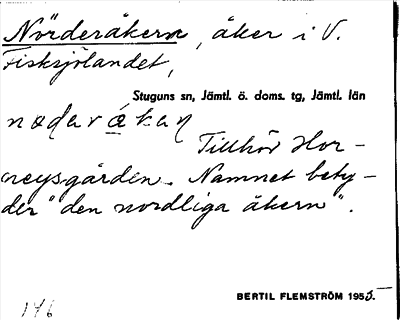 Nörderåkern, åker i V.
Fisksjölandet,
Stuguns sn, Jämtl. ö. doms. tg, Jämtl. län
Tillhör Hor-
neysgården. Namnet bety-
der "den nordliga åkern".
BERTIL FLEMSTRÖM 1955
146